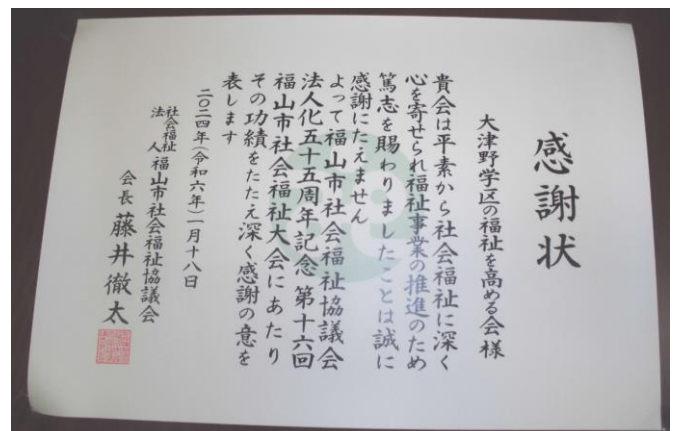 感謝状
大津野学区の福祉を高める会様
貴会は平素から社会福祉に深く
心を寄せられ福祉事業の推進のため
篤志を賜わりましたことは誠に
感謝にたえません
よって福山市社会福祉協議会
法人化五十五周年記念第十六回
福山市社会福祉大会にあたり
その功績をたたえ深く感謝の意を
表します
二〇二四年(令和六年)一月十八日
社会福祉法人福山市社会福祉協議会
会長藤井徹太